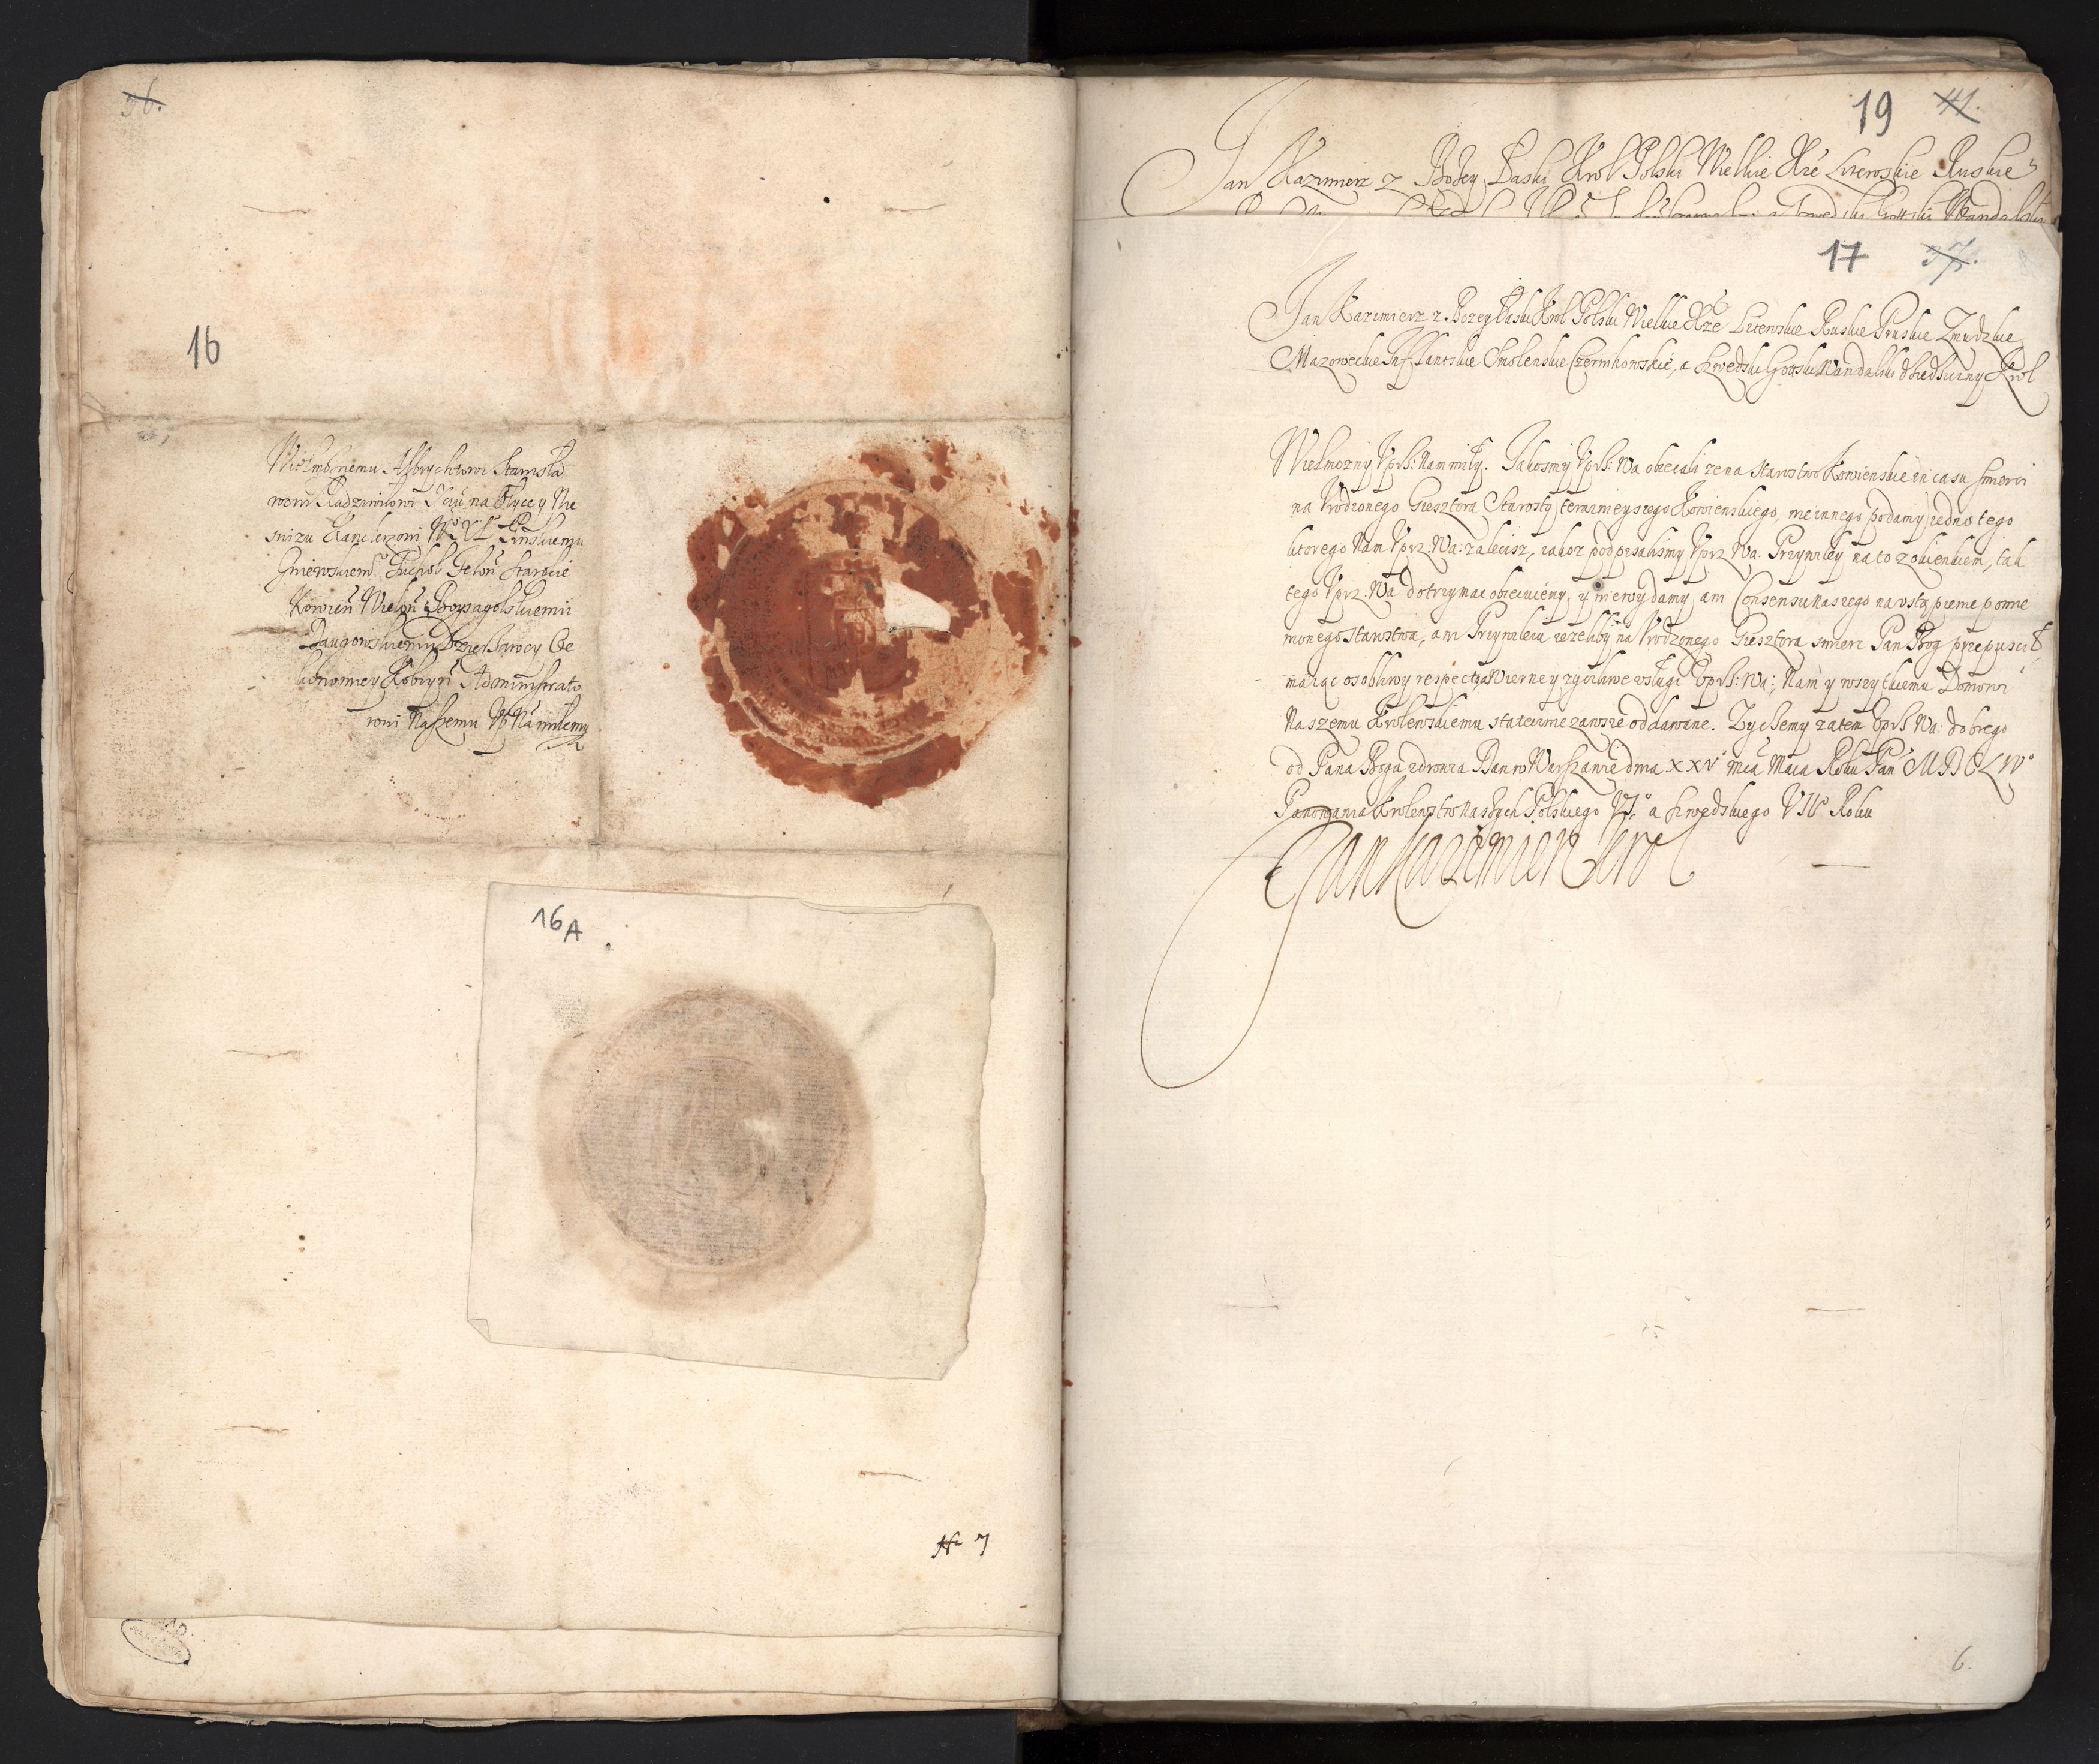 36.
16
Wielmożnemu Albrychtowi Stanisła
wowi Radziwiłowi Xciu na Ołyce y Nie
świżu Kanclerzowi W° X L° Pinskiemu
Gniewskiem° Tuchol Geloń Staroście
Kowień Wieloń Boysagolskiemu
Daugowskiemu Dzierżawcy Oe
Kobryń Administrato
rowi Naszemu Up. Nā miłemu
16A
No 7
19 41.
Jan Kazimierz z Bożey Łaski Krol Polski Wielkie Xże Litewskie Ruskie
Szwedzki Gottski Wandalski
17 37.
Jan Kazimierz z Bozey Łaski Krol Polski Wielkie Xże Litewskie Ruskie Pruskie Zmudzkie
Mazowieckie Infflantskie Smolenskie Czernihowskie, a Szwedzki Gottski Wandalski dziedziczny Krol
Wielmozny Uprz: Nam miły. Jakosmy Uprz: Wa obiecali ze na Starostwo Kowienskie in casu smierci
na Urodzonego Giesztora Starosty teraznieyszego Kowienskiego, nie innego podamy jedno tego
ktorego Nam Uprz: Wa: zalecisz, iakoz podpisalismy Uprz Wa: Przywiley na to z okienkiem, tak
tego Uprz: Wa dotrzymac obiecuiemy, y nie wydamy ani Consensu Naszego na vstąpienie pomie
nionego Starostwa, ani Przywileiu iezeliby na Urodzonego Giesztora smierc Pan Bog przepuscił
maiąc osobliwy respect na Wierne y zyczliwe vsługi Uprz: Wa:, Nam y wszytkiemu Domowi
Naszemu Krolewskiemu statecznie zawsze oddawane. Zyczemy zatem Uprz Wa: dobrego
od Pana Boga zdrowia Dan w Warszawie dnia XXV Mca Maia Roku Pań MDCLIV°
Panowania Krolewstw Naszych Polskiego VI° a Szwedzkiego VII° Roku
Jan Kazimierz Krol
6.